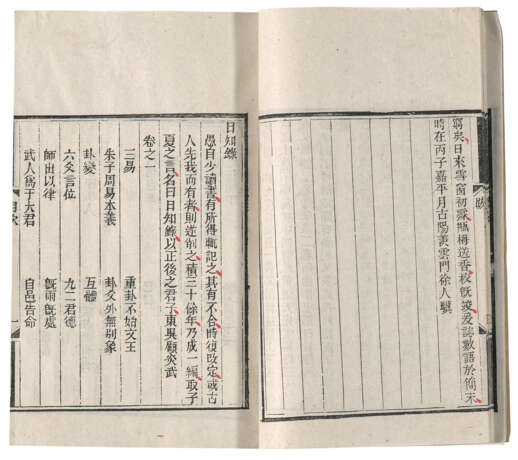 窮矣日來雪窗初霽臘梅送香校旣竣爰誌數語於簡末
時在丙子嘉平月古陽羨雲門徐人驥
跋
日知錄
愚自少讀書有所得輒記之其有不合時復改定或古
人先我而有者則遂削之積三十餘年乃成一編取子
夏之言名曰日知錄以正後之君子東吳顧炎武
卷之一
三易 重卦不始文王
朱子周易本義 卦爻外無別象
卦變 互體
六爻言位 九二君德
師出以律 旣雨旣處
武人爲于大君 自邑告命
目次
一